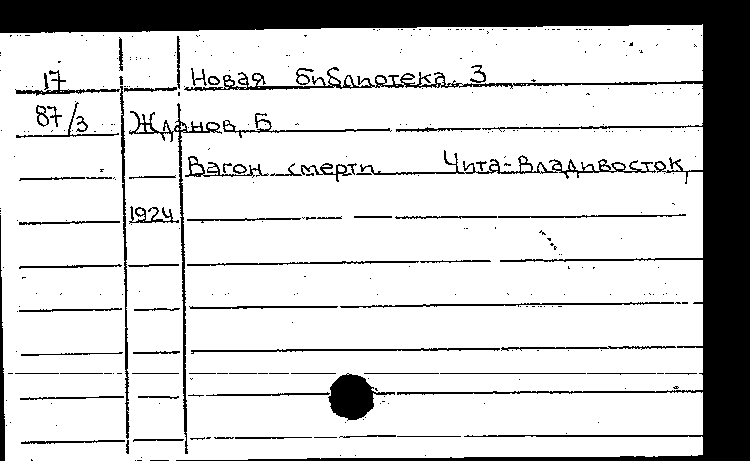 17 Новая библиотека. 3
87/3 Жданов, Б
Вагон смерти. Чита-Владивосток,
1924